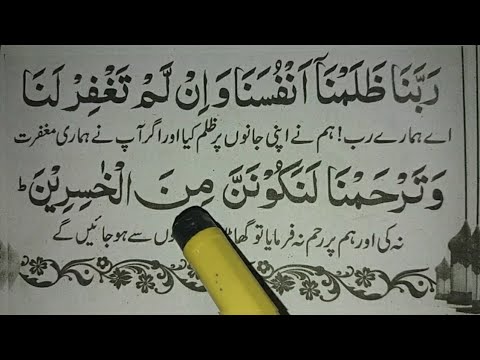 رَبَّنَا ظَلَمْنَآ اَنْفُسَنَا وَاِنْ لَّمْ تَغْفِرْ لَنَا
اے ہمارے رب! ہم نے اپنی جانوں پر ظلم کیا اور اگر آپ نے ہماری مغفرت
وَتَرْحَمْنَا لَنَكُوْنَنَّ مِنَ الْخٰسِرِيْنَ ؕ
نہ کی اور ہم پر رحم نہ فرمایا تو سے ہو جائیں گے